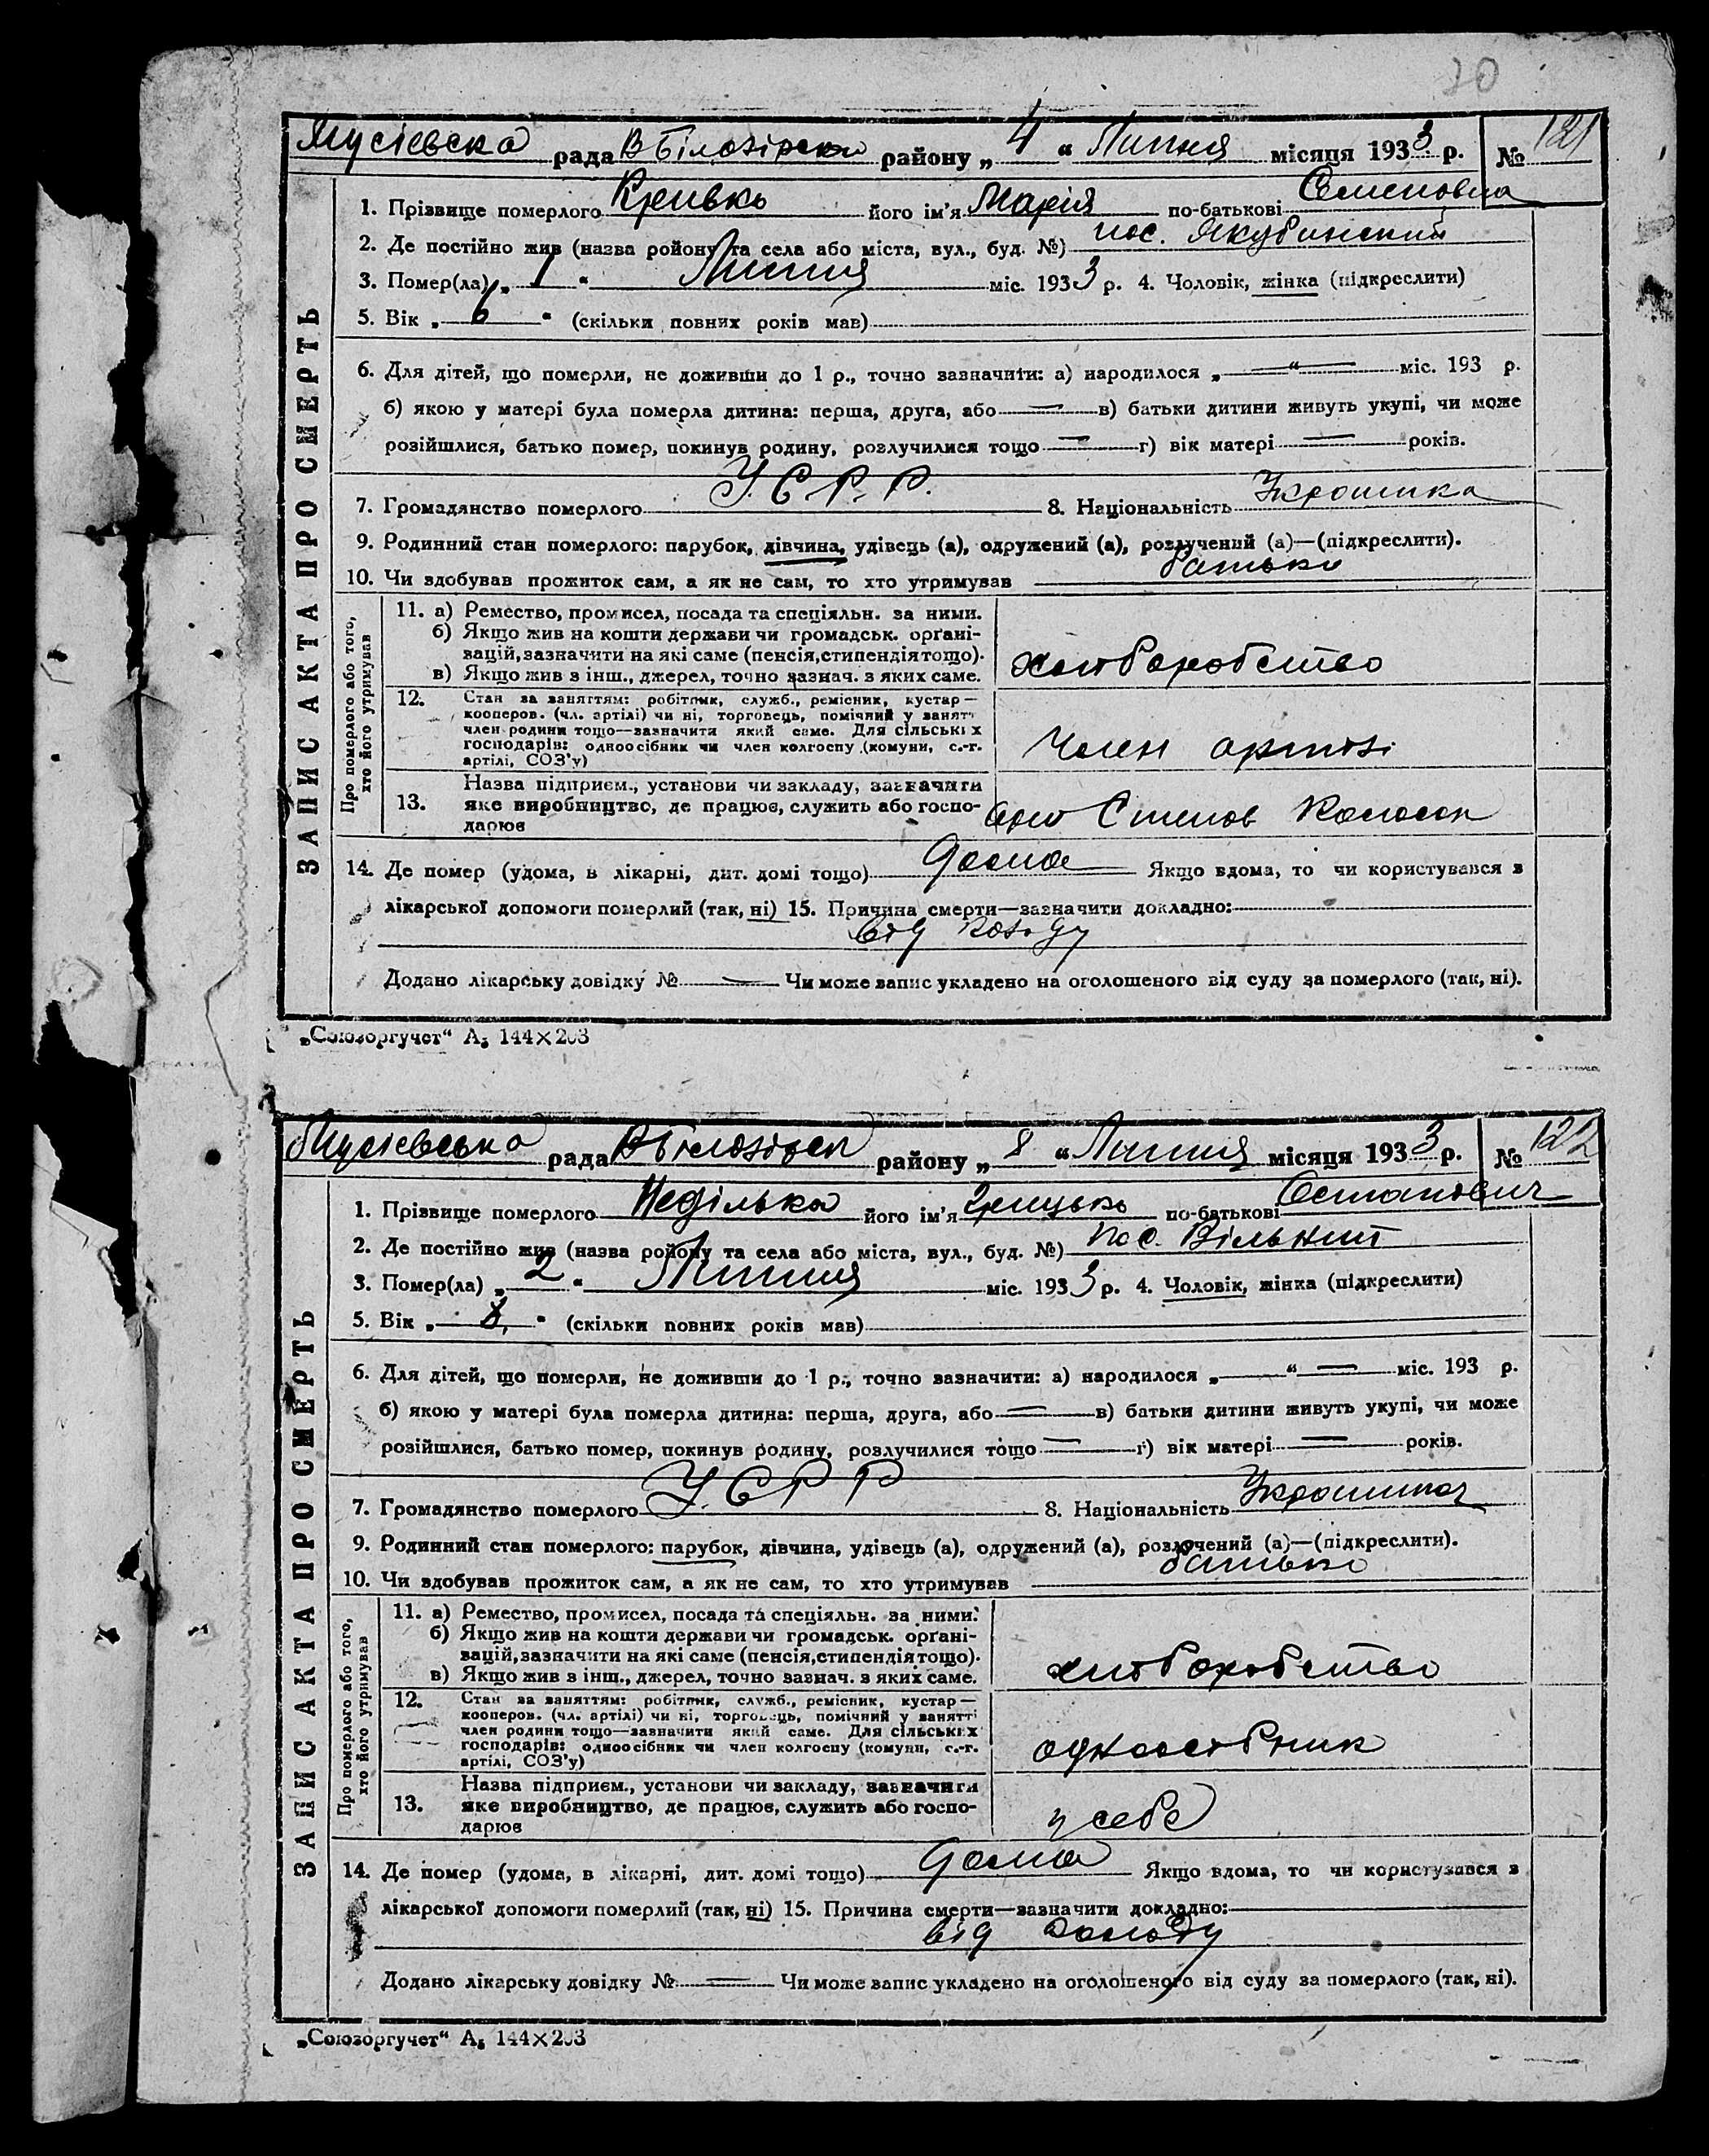 20
Мусіевска рада В Білозірска району „ 4 “ Липня місяця 1933 р. № 121
ЗАПИС АКТА ПРО СМЕРТЬ
1. Прізвище померлого Кривко його ім'я Марія по-батькові Семеновна
2. Де постійно жив (назва ройону та села або міста, вул., буд. №) пос. Якубинский
3. Помер(ла) „ 1 “ Липня міс. 1933 р. 4. Чоловік, жінка (підкреслити)
5. Вік „ 6 “ (скільки повних років мав)
6. Для дітей, що померли, не доживши до 1 р., точно зазначити: а) народилося „ — “ — міс. 193 р.
б) якою у матері була померла дитина: перша, друга, або — в) батьки дитини живуть укупі, чи може
розійшлися, батько помер, покинув родину, розлучилися тощо — г) вік матері — років.
7. Громадянство померлого У.С.Р.Р. 8. Національність Украинка
9. Родинний стан померлого: парубок, дівчина, удівець (а), одружений (а), розлучений (а)—(підкреслити).
10. Чи здобував прожиток сам, а як не сам, то хто утримував батько
Про померлого або того, хто його утримував
11. а) Ремество, промисел, посада та спеціяльн. за ними.
б) Якщо жив на кошти держави чи громадськ. орґані-
зацій, зазначити на які саме (пенсія, стипендія тощо).
в) Якщо жив з інш., джерел, точно зазнач. з яких саме.
хліборобство
12. Стан за заняттям: робітник, служб., ремісник, кустар—
кооперов. (чл. артілі) чи ні, торговець, помічний у занятт
член родини тощо—зазначити який саме. Для сільських
господарів: одноосібник чи член колгоспу (комуни, с.-г.
артілі, СОЗ'у)
член артілі
Назва підприєм., установи чи закладу, зазначити
13. яке виробництво, де працює, служить або госпо-
дарює
Степов Колосок
14. Де помер (удома, в лікарні, дит. домі тощо) дома Якщо вдома, то чи користувався з
лікарської допомоги померлий (так, ні) 15. Причина смерти—зазначити докладно:
від
Додано лікарську довідку № — Чи може запис укладено на оголошеного від суду за померлого (так, ні).
„Союзоргучет“ А₅ 144×203
Мусіевська рада В Білозірск району „ 8 “ Липня місяця 1933 р. № 122
ЗАПИС АКТА ПРО СМЕРТЬ
1. Прізвище померлого Неділько його ім'я Грицько по-батькові Остапович
2. Де постійно жив (назва ройону та села або міста, вул., буд. №) пос. Вільний
3. Помер(ла) „ 2 “ Липня міс. 1933 р. 4. Чоловік, жінка (підкреслити)
5. Вік „ 8 “ (скільки повних років мав)
6. Для дітей, що померли, не доживши до 1 р., точно зазначити: а) народилося „ — “ — міс. 193 р.
б) якою у матері була померла дитина: перша, друга, або — в) батьки дитини живуть укупі, чи може
розійшлися, батько помер, покинув родину, розлучилися тощо — г) вік матері — років.
7. Громадянство померлого У.С.Р.Р 8. Національність
9. Родинний стан померлого: парубок, дівчина, удівець (а), одружений (а), розлучений (а)—(підкреслити).
10. Чи здобував прожиток сам, а як не сам, то хто утримував батько
Про померлого або того, хто його утримував
11. а) Ремество, промисел, посада та спеціяльн. за ними.
б) Якщо жив на кошти держави чи громадськ. орґані-
зацій, зазначити на які саме (пенсія, стипендія тощо).
в) Якщо жив з інш., джерел, точно зазнач. з яких саме.
хліборобство
12. Стан за заняттям: робітник, служб., ремісник, кустар—
кооперов. (чл. артілі) чи ні, торговець, помічний у занятті
член родини тощо—зазначити який саме. Для сільських
господарів: одноосібник чи член колгоспу (комуни, с.-г.
артілі, СОЗ'у)
одноосібник
Назва підприєм., установи чи закладу, зазначити
13. яке виробництво, де працює, служить або госпо-
дарює
у себе
14. Де помер (удома, в лікарні, дит. домі тощо) дома Якщо вдома, то чи користувався з
лікарської допомоги померлий (так, ні) 15. Причина смерти—зазначити докладно:
від
Додано лікарську довідку № — Чи може запис укладено на оголошеного від суду за померлого (так, ні).
„Союзоргучет“ А₅ 144×203